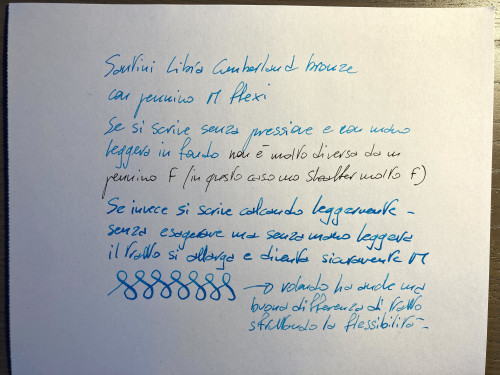 Santini Libra Cumberland bronze
con pennino M flexi
Se si scrive senza pressione e con mano
leggera in fondo non è molto diverso da un
pennino F (in questo caso uno Staedtler molto F)
Se invece si scrive calcando leggermente -
senza esagerare ma senza mano leggera
il tratto si allarga e diventa sicuramente M
→ volendo ha anche una
buona differenza di tratto
sfruttando la flessibilità -